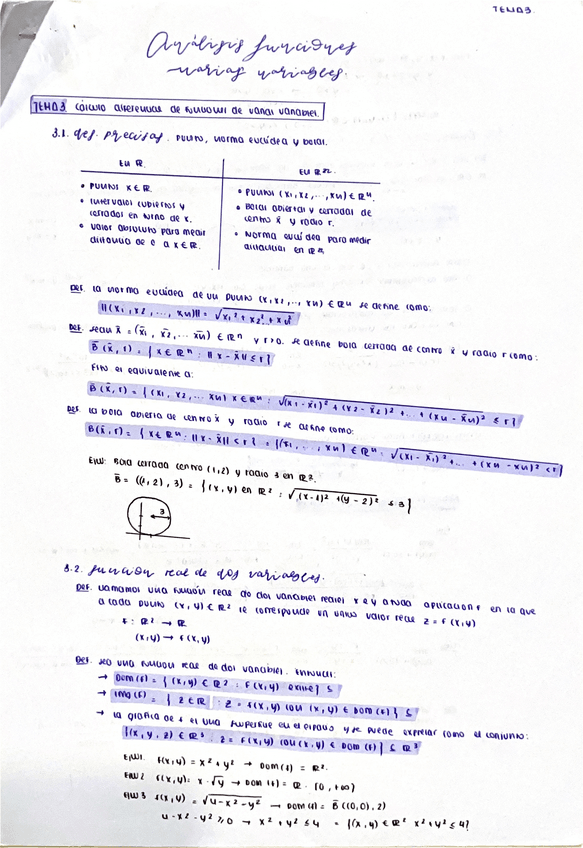 TEMA3.
Análisis funciones
varias variables.
TEMA3 cálculo diferencial de funciones de varias variables.
3.1. def. precisas. puntos, norma euclídea y bolas.
EN R. EN R^n.
• puntos x ∈ R.
• intervalos cubiertos y
cerrados en torno de x.
• valor absoluto para medir
distancia de 0 a x ∈ R.
• puntos (x1, x2, ..., xn) ∈ R^n.
• Bolas abiertas y cerradas de
centro x̄ y radio r.
• Norma euclídea para medir
distancias en R^n
Def. la norma euclídea de un punto (x1, x2, ..., xn) ∈ R^n se define como:
||(x1, x2, ..., xn)|| = √x1² + x2² + xn²
Def. sean x̄ = (x̄1, x̄2, ... x̄n) ∈ R^n y r>0. se define bola cerrada de centro x̄ y radio r como:
B̄(x̄, r) = {x ∈ R^n : ||x - x̄|| ≤ r}
Esto es equivalente a:
B(x̄, r) = {(x1, x2, ... xn) x ∈ R^n : √(x1 - x̄1)² + (x2 - x̄2)² + ... + (xn - x̄n)² ≤ r}
Def. la bola abierta de centro x̄ y radio r se define como:
B(x̄, r) = {x ∈ R^n : ||x - x̄|| < r} = {(x1, ..., xn) ∈ R^n : √(x1 - x̄1)² + ... + (xn - xn)² < r}
EJM: Bola cerrada centro (1,2) y radio 3 en R².
B̄ = ((1,2), 3) = {(x,y) en R² : √(x-1)² + (y-2)² ≤ 3}
3
3.2. función real de dos variables.
Def. llamamos una función real de dos variables reales x e y a toda aplicación f en la que
a cada punto (x,y) ∈ R² le corresponde un único valor real z = f(x,y)
f: R² → R
(x,y) → f(x,y)
Def. sea una función real de dos variables. Entonces:
→ Dom(f) = {(x,y) ∈ R² : f(x,y) existe} ≤
→ Img(f) = {z ∈ R : z = f(x,y) con (x,y) ∈ Dom(f)} ≤
→ la gráfica de f es una superficie en el espacio y se puede expresar como el conjunto:
{(x,y,z) ∈ R³ : z = f(x,y) con (x,y) ∈ Dom(f)} ≤ R³
EJM1. f(x,y) = x² + y² → Dom(f) = R².
EJM2 f(x,y) = x · √y → Dom(f) = R · [0, +∞)
EJM3 f(x,y) = √4-x²-y² → Dom(f) = B̄((0,0), 2)
4-x²-y² ≥ 0 → x² + y² ≤ 4 = {(x,y) ∈ R² x² + y² ≤ 4}